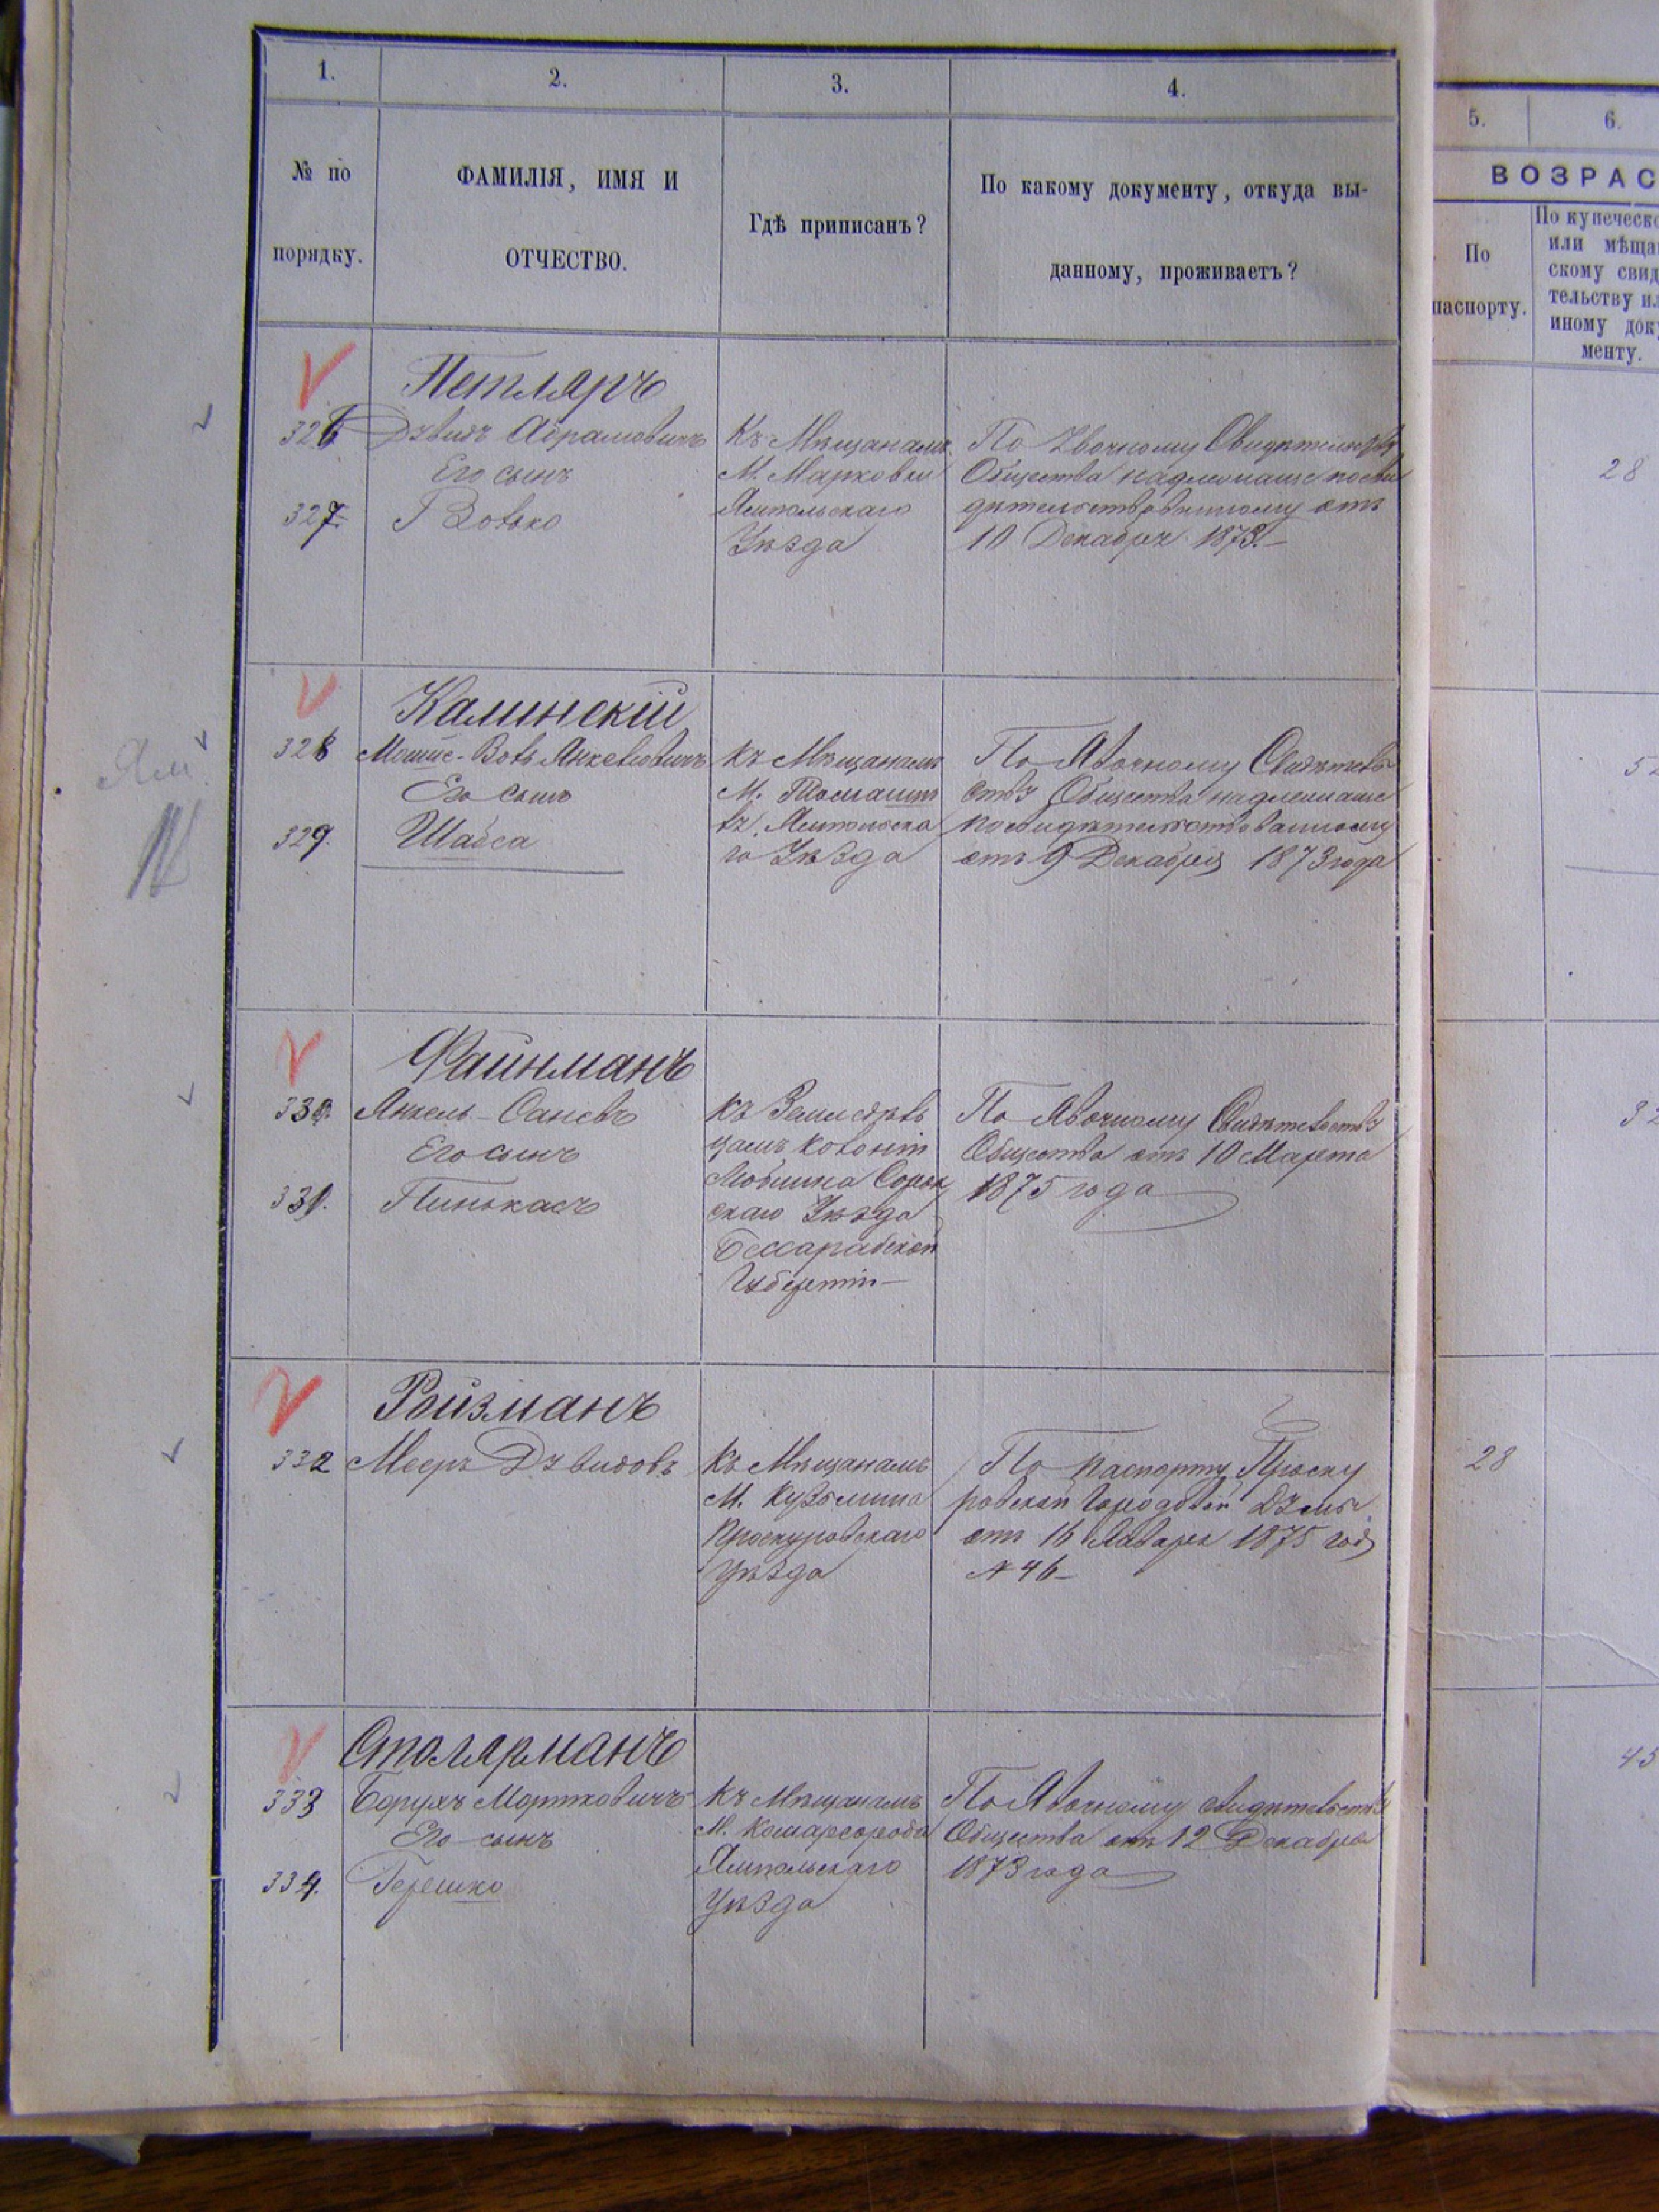 1.
2.
3.
4.
5.
6.
№ по
порядку.
ФАМИЛІЯ, ИМЯ И
ОТЧЕСТВО.
Гдѣ приписанъ?
По какому документу, откуда вы-
данному, проживаетъ?
ВОЗРАС
По
паспорту.
По купеческо
или мѣща
скому свид
тельству ил
иному док
менту.
Петляръ
326 Абрамовичъ
Его сынъ
327.
Къ Мѣщанамъ
М. Марковки
Ямпольскаго
Уѣзда
По Свидѣтельству
Общества надлежаще посви
дѣтельствованному отъ
10 Декабря 1873.
28
Калинскій
328 Янкелювичъ
Его сынъ
329. Шабса
Къ Мѣщанамъ
М. Томашпо
ль Ямпольска
го Уѣзда
По Явочному Свидѣтель
ству Общества надлежаще
посвидѣтельствованному
отъ 9 Декабря 1873 года
Ям
Файнманъ
330. Янкель
Его сынъ
331. Пинькасъ
Къ Земледѣль
цамъ Колоніи
Люблина Сорок
скаго Уѣзда
Бессарабской
Губерніи
По Явочному Свидѣтельству
Общества отъ 10 Марта
1875 года
32
Ройзманъ
332 Мееръ Дувидовъ
Къ Мѣщанамъ
М. Кузьмина
Проскуровскаго
Уѣзда
По паспорту Проску
ровской Городовой Думы
отъ 16 Января 1875 года
№ 46
28
Столярманъ
333 Борухъ Мортковичъ
Его сынъ
334. Гершко
Къ Мѣщанамъ
М. Комаргорода
Ямпольскаго
Уѣзда
По Явочному свидѣтельству
Общества отъ 12 Декабря
1873 года
45